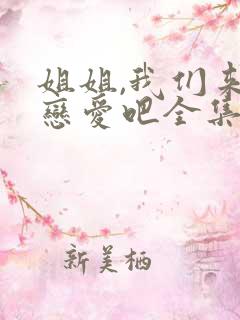 姐姐,我们来
戀愛吧全集
新美栖